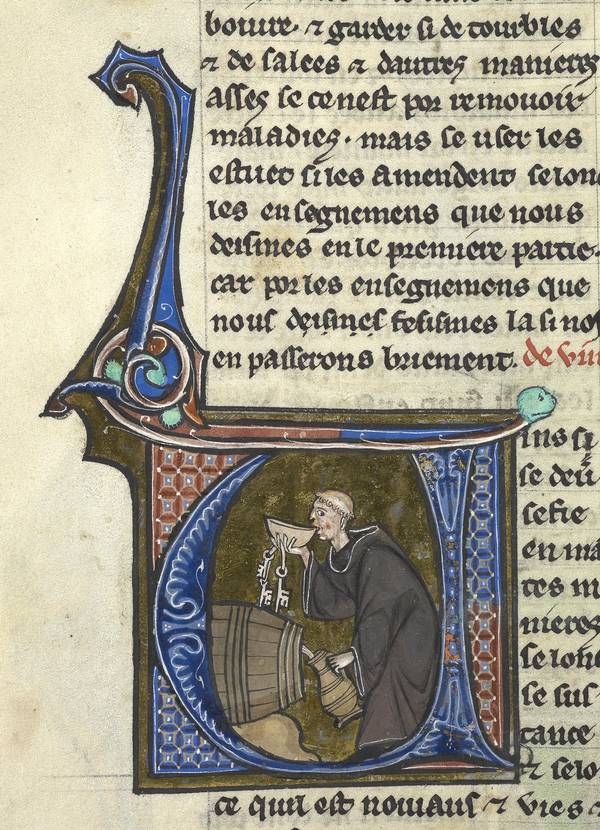 boivre · ⁊ garder si de tourbles
⁊ de salees ⁊ dautres manieres
asses se ce nest por remouoir
maladies · mais se user les
estuet si les amendent selonc
les ensegnemens que nous
desimes en le premiere partie ·
car por les ensegnemens que
nous fesismes la
en passerons briement · de vin
ins si
se deui
sefie
en ma
tes m
nieres
se lonc
se sus
tance
⁊ selo
ce quil est nouiaus ⁊ vies ⁊